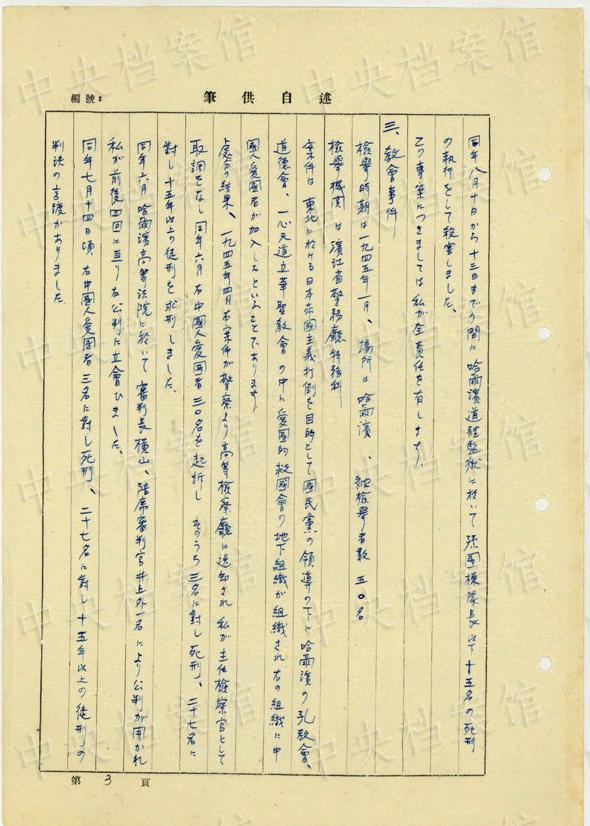 筆供自述
編號：
同年八月十日から十三日までの間に哈爾濱道裡監獄に於いて孫國棟隊長以下十五名の死刑
の執行をして殺害しました。
この事案につきましては私が全責任を有します。
三、教會事件
檢擧時期は一九四五年一月、場所は哈爾濱、被檢擧者数五〇名
檢擧機関は濱江省警務廳特務科
案件は東北に於ける日本帝國主義打倒を目的として國民黨の領導の下に哈爾濱の孔教會、
道徳會、一心天道立華聖教會の中に愛國的救國會の地下組織が組織され右の組織に中
國人愛國者が加入したということであります
處分の結果、一九四五年四月右案件が警察より高等檢察廳に送卸され私が主任檢察官として
取調をなし同年六月右中國人愛國者三〇名を起訴しそのうち三名に対し死刑、二十七名に
対し十五年以上の徒刑を求刑しました。
同年六月哈爾濱高等法院に於いて審判長横山、陪席審判官井上外一名により公判が開かれ
私が前後四回に亙り右公判に立會ひました。
同年七月十四日頃右中國人愛國者三名に対し死刑、二十七名に対し十五年以上の徒刑の
判決の言渡がありました
第3頁
中央档案馆